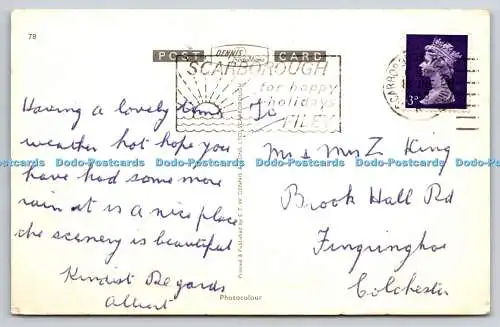 78
POST CARD
DENNIS
Productions
SCARBOROUGH
for happy
holidays
FILEY
SCARBORO
3D
Having a lovely time
weather hot hope you
have had some more
rain it is a nice place
the scenery is beautiful
Kindist Regards
Albert
To
Mr & Mrs Z King
Brook Hall Rd
Fingringhoe
Colchester
Printed & Published by E. T. W. DENNIS
Photocolour
Dodo-Postcards Dodo-Postcards Dodo-Postcards Dodo-Postcards Dodo-Postcards Dodo-Postcards